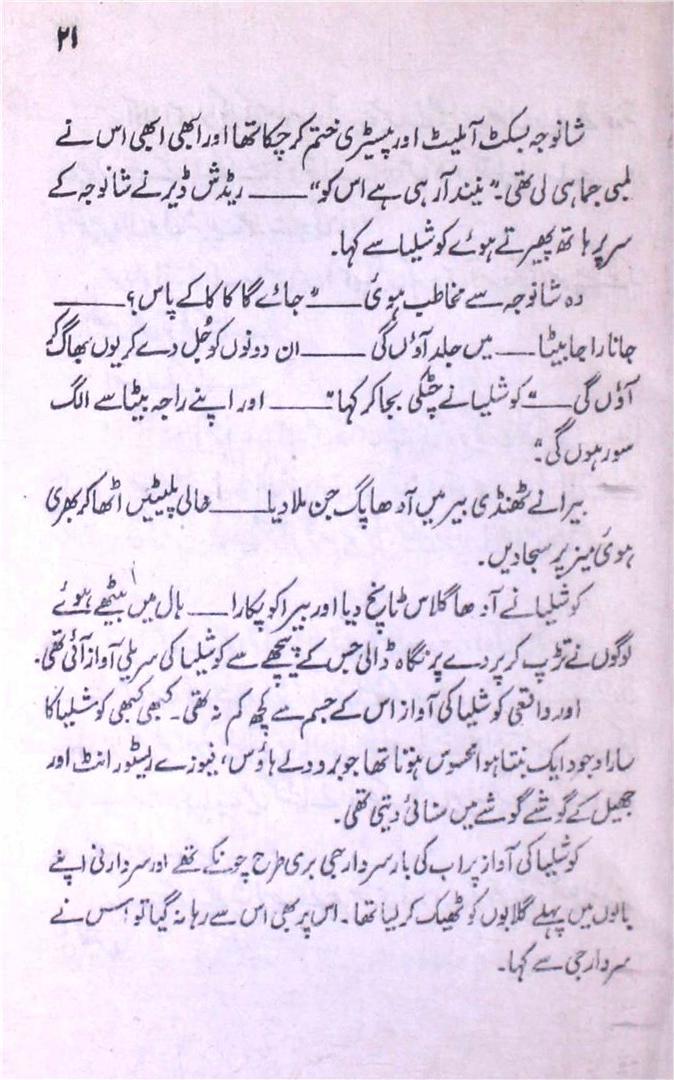 ۲۱
شانوجہ بسکٹ آملیٹ اور پیسٹری ختم کر چکا تھا اور ابھی ابھی اس نے
لمبی جماہی لی تھی۔ "نیند آرہی ہے اس کو" ——— ریڈش ڈیر نے شانوجہ کے
سر پر ہاتھ پھیرتے ہوئے کوشلیا سے کہا۔
وہ شانوجہ سے مخاطب ہوئی ——— "جائے گا کاکا کے پاس؟ ———
جانا راجا بیٹا ——— میں جلد آؤں گی ——— ان دونوں کو جُل دے کر یوں بھاگ کے
آؤں گی ——— "کوشلیا نے چٹکی بجا کر کہا" ——— اور اپنے راجہ بیٹا سے الگ
سو رہوں گی۔"
بیرا نے ٹھنڈی بیر میں آدھا پگ جن ملا دیا ——— خالی پلیٹیں اٹھا کر بھری
ہوئی میز پر سجا دیں۔
کوشلیا نے آدھا گلاس ٹاپخ دیا اور بیرا کو پکارا ——— ہال میں بیٹھے ہوئے
لوگوں نے تڑپ کر پردے پر نگاہ ڈالی جس کے پیچھے سے کوشلیا کی سریلی آواز آئی تھی۔
اور واقعی کوشلیا کی آواز اس کے جسم سے کچھ کم نہ تھی۔ کبھی کبھی کوشلیا کا
سارا وجود ایک بنتا ہوا محسوس ہوتا تھا جو ہاؤس، نیوزے ریسٹورانٹ اور
جھیل کے گوشے گوشے میں سنائی دیتی تھی۔
کوشلیا کی آواز پر اب کی بار سردار جی بری طرح چونکے تھے اور سردارنی اپنے
بالوں میں پہلے گلابوں کو ٹھیک کر لیا تھا۔ اس پر بھی اس سے رہا نہ گیا تو اس نے
سردار جی سے کہا۔